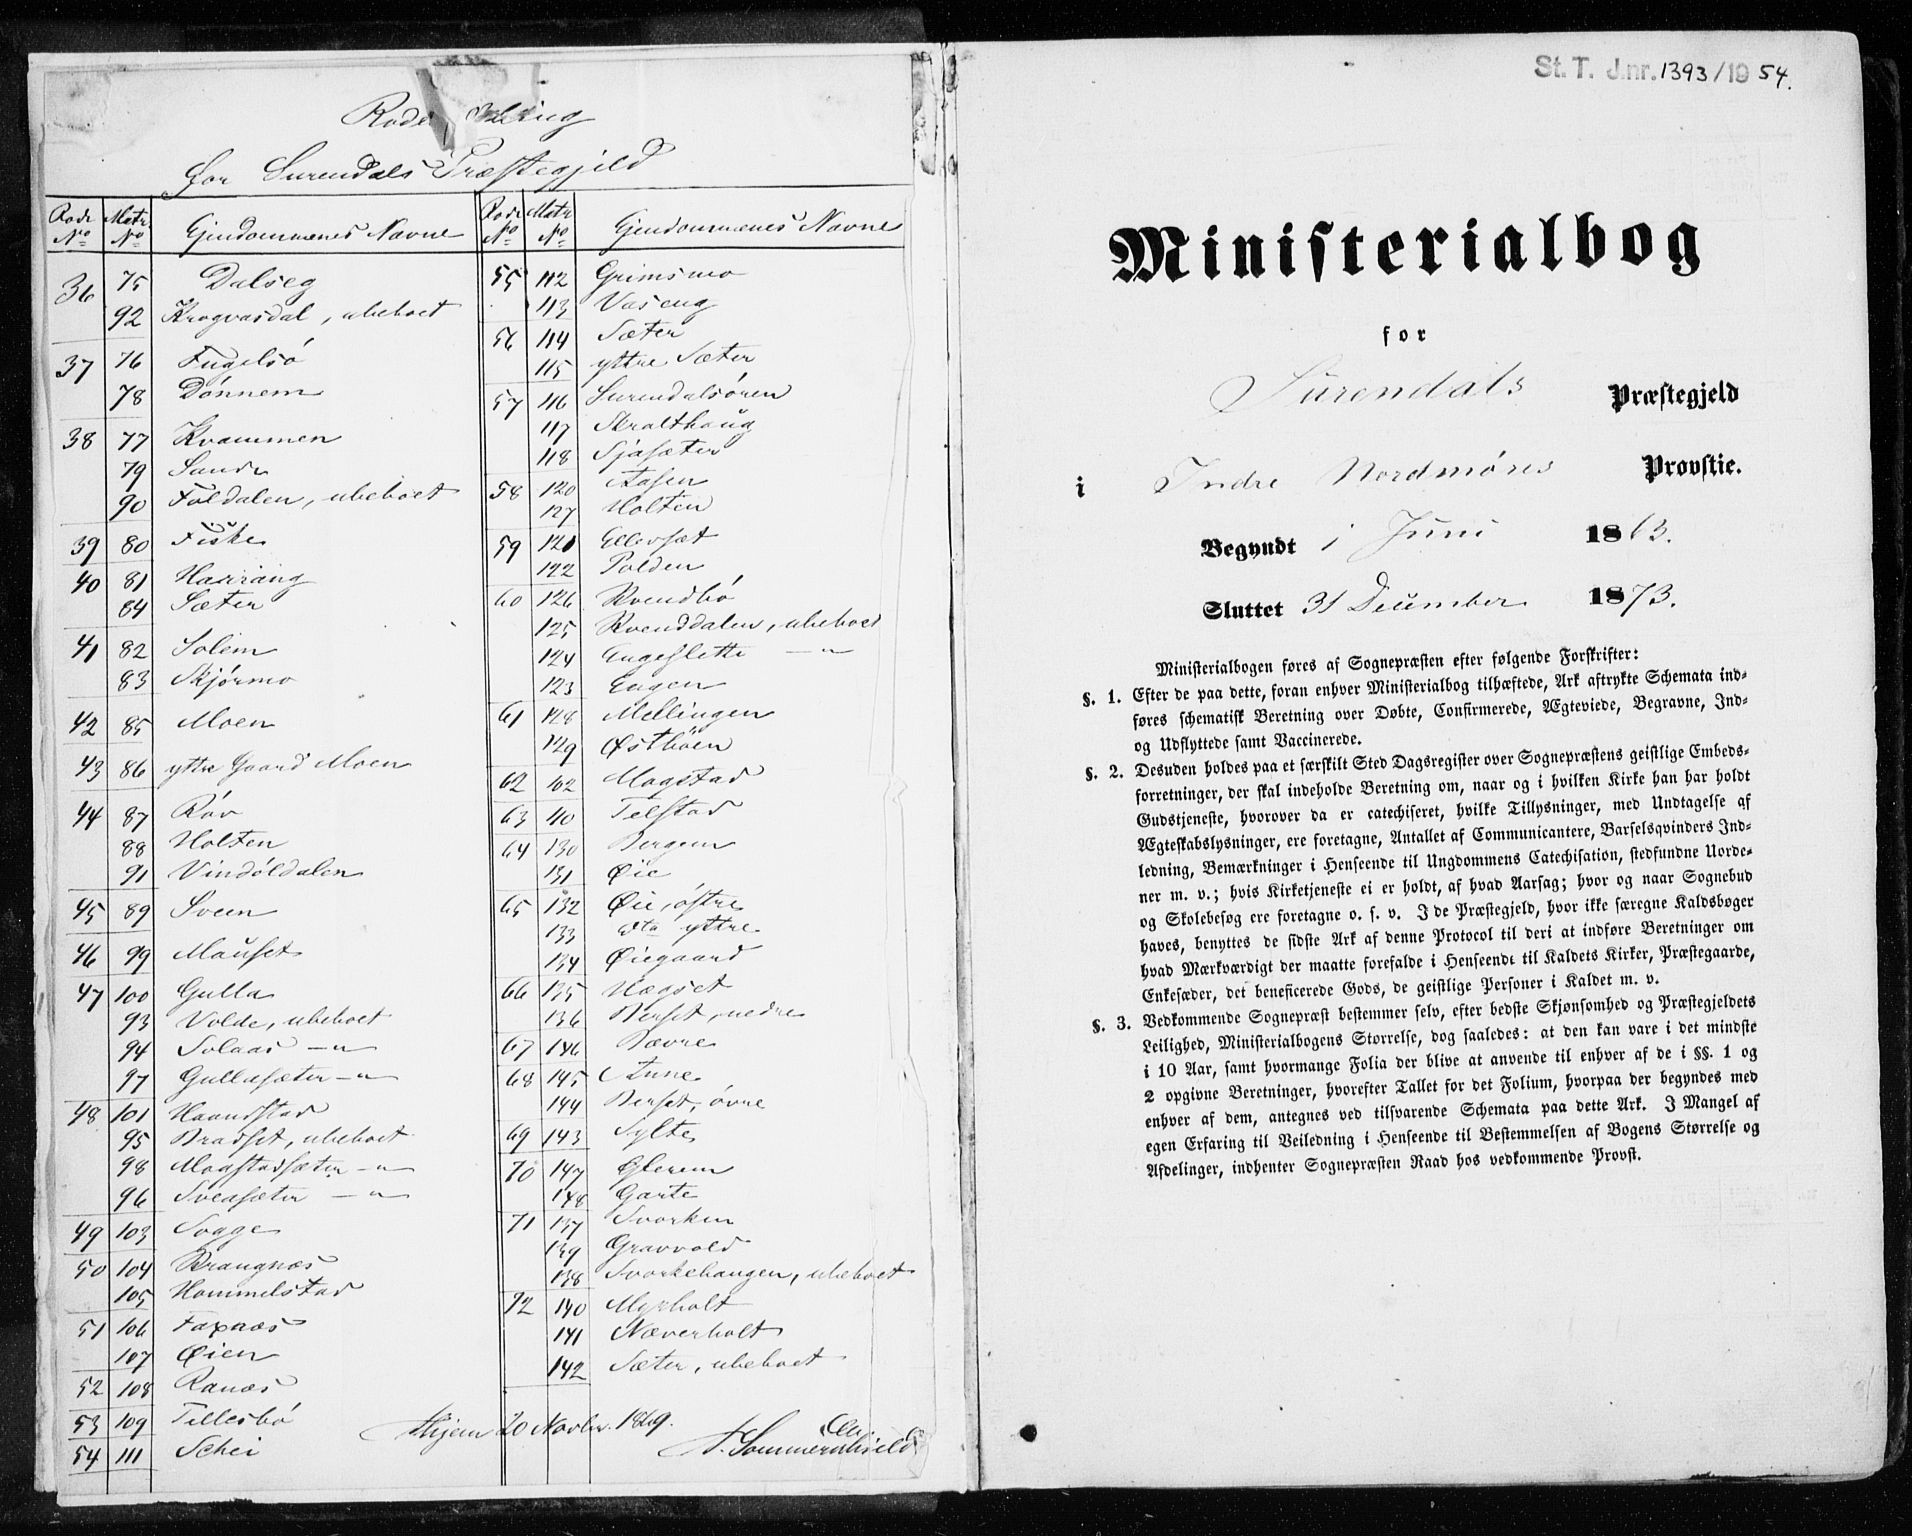 Rode
for Surendals Præstegjeld
Rode No Matr No Eiendommenes Navne
36 75 Dalseg
92 Krogvasdal, ubeboet
37 76 Fugelsø
78 Dønnem
38 77 Kvammen
79 Sande
90 Foldalen, ubeboet
39 80 Fiske
40 81 Harang
84 Sæter
41 82 Solem
83 Skjørmo
42 85 Moen
43 86 yttre Gaard Moen
44 87 Røv
88 Holten
91 Vindøldalen
45 89 Sveen
46 99 Mauset
47 100 Gulla
93 Volde, ubeboet
94 Solaas —"—
97 Gullasæter —"—
48 101 Haandstad
95 Bradset, ubeboet
98 Mogstadsæter —"—
96 Sveasæter —"—
49 103 Sogge
50 104 Brangnæs
105 Hommelstad
51 106 Faxnæs
107 Øien
52 108 Ranæs
53 109 Tellesbø
54 111 Schei
Rode No Matr No Eiendommenes Navne
55 112 Grimsmo
113 Vaseng
56 114 Sæter
115 yttre Sæter
57 116 Surendalsøren
117 Skralthaug
118 Sjøsæter
58 120 Aasen
127 Holten
59 121 Ellevset
122 Polden
60 126 Kvendbø
125 Kvenddalen, ubeboet
124 Engeslette —"—
123 Engen
61 128 Mellingen
129 Østbøen
62 102 Mogstad
63 110 Telstad
64 130 Bergem
131 Øie
65 132 Øie, østre
133 dto yttre
134 Øiegaard
66 135 Hægset
136 Berset, nedre
67 146 Bævre
68 145 Aune
144 Berset, øvre
69 143 Sylte
70 147 Glærem
148 Garte
71 137 Svorken
139 Gravvold
138 Svorkehaugen, ubeboet
72 140 Myrholt
141 Næverholt
142 Sæter, ubeboet
20 Novbr. 1869.
Sommerschield
St. T. J.nr. 1393/1954.
Ministerialbog
for
Surendals Præstegjeld
i Indre Nordmøres Provstie.
Begyndt 1 Juni 1863.
Sluttet 31 December 1873.
Ministerialbogen føres af Sognepræsten efter følgende Forskrifter:
§. 1. Efter de paa dette, foran enhver Ministerialbog tilhæftede, Ark aftrykte Schemata ind-
føres schematisk Beretning over Døbte, Confirmerede, Ægteviede, Begravne, Ind-
og Udflyttede samt Vaccinerede.
§. 2. Desuden holdes paa et særskilt Sted Dagsregister over Sognepræstens geistlige Embeds-
forretninger, der skal indeholde Beretning om, naar og i hvilken Kirke han har holdt
Gudstjeneste, hvorover da er catechiseret, hvilke Tillysninger, med Undtagelse af
Ægteskabslysninger, ere foretagne, Antallet af Communicantere, Barselsqvinders Ind-
ledning, Bemærkninger i Henseende til Ungdommens Catechisation, stedfundne Uorde-
ner m. v.; hvis Kirketjeneste ei er holdt, af hvad Aarsag; hvor og naar Sognebud
og Skolebesøg ere foretagne o. s. v. I de Præstegjeld, hvor ikke særegne Kaldsbøger
haves, benyttes de sidste Ark af denne Protocol til deri at indføre Beretninger om
hvad Mærkværdigt der maatte forefalde i Henseendt til Kaldets Kirker, Præstegaarde,
Enkesæder, det beneficerede Gods, de geistlige Personer i Kaldet m. v.
§. 3. Vedkommende Sognepræst bestemmer selv, efter bedste Skjønsomhed og Præstegjeldets
Leilighed, Ministerialbogens Størrelse, dog saaledes: at den kan vare i det mindste
i 10 Aar, samt hvormange Folia der blive at anvende til enhver af de i §§. 1 og
2 opgivne Beretninger, hvorefter Tallet for det Folium, hvorpaa der begyndes med
enhver af dem, antegnes ved tilsvarende Schemata paa dette Ark. I Mangel af
egen Erfaring til Veiledning i Henseende til Bestemmelsen af Bogens Størrelse og
Afdelinger, indhenter Sognepræsten Raad hos vedkommende Provst.